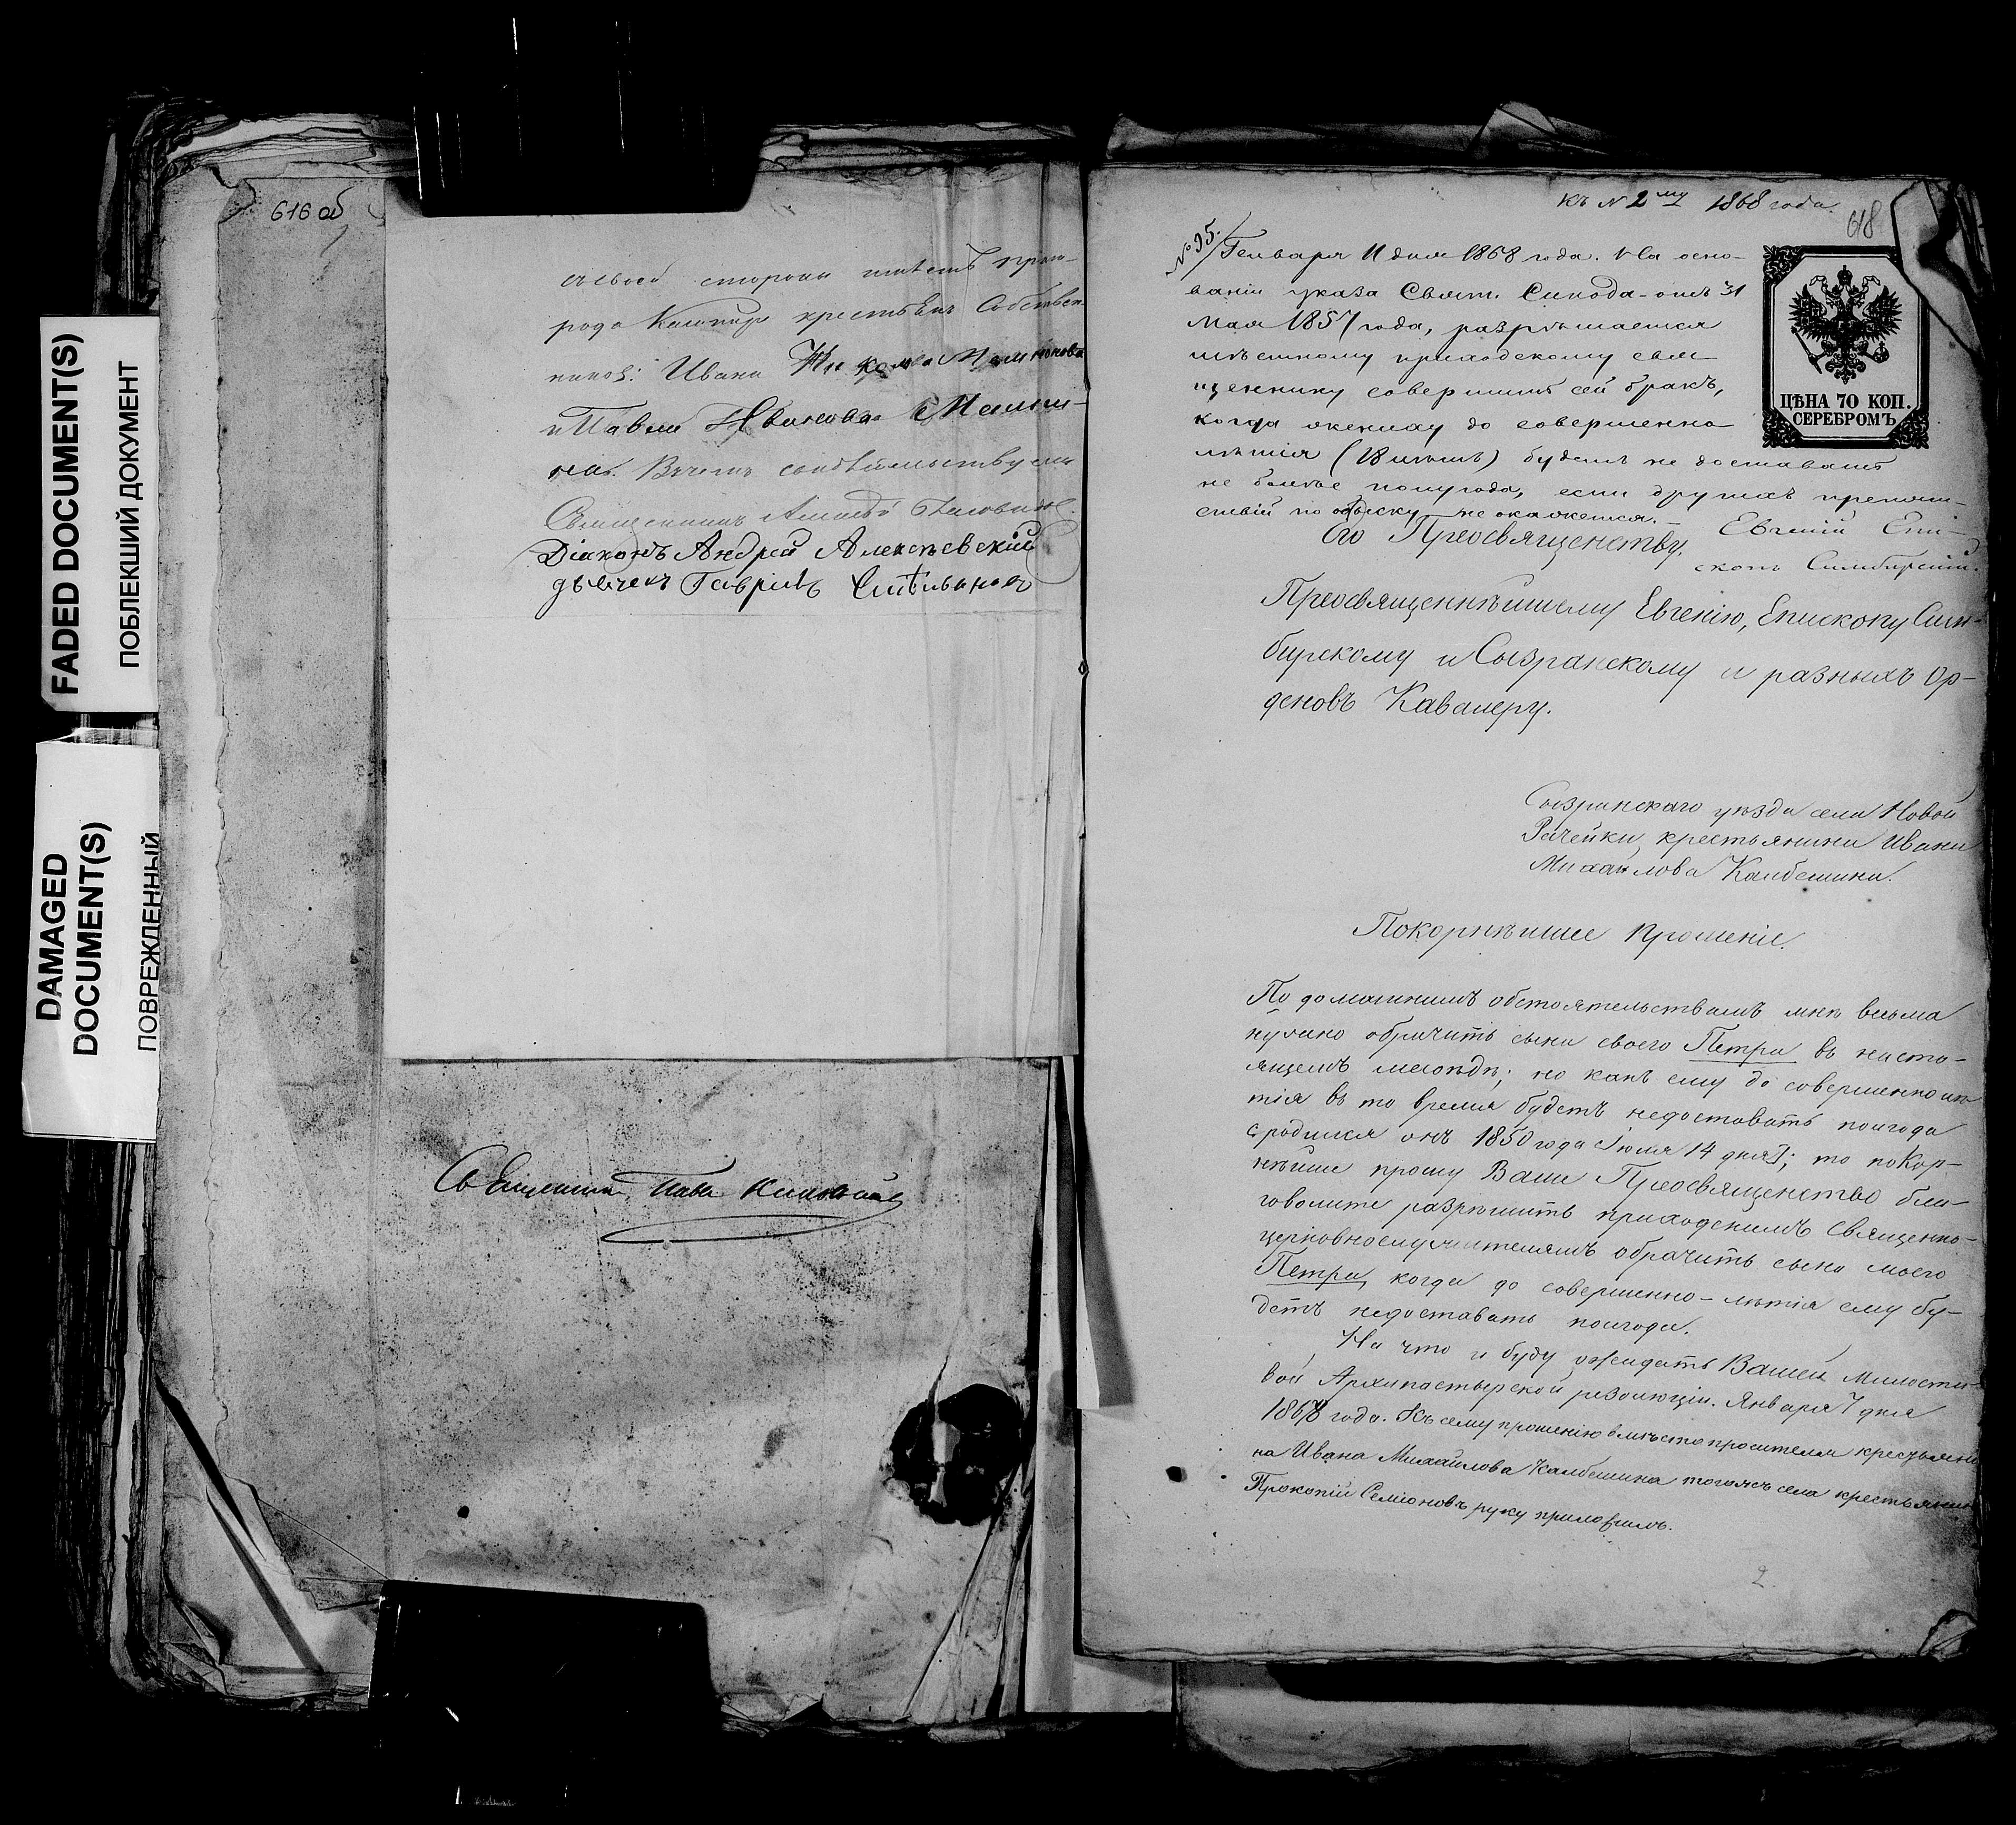 FADED DOCUMENT(S)
ПОБЛЕКШИЙ ДОКУМЕНТ
DAMAGED
DOCUMENT(S)
ПОВРЕЖДЕННЫЙ
616 об
стороны
рода крестьянъ Собствен-
никовъ: Ивана
и Павла Иванова
Священникъ Алексѣй
Діаконъ Андрей Алексѣевскій
дьячекъ Гавріилъ
Священникъ
къ № 2му 1868 года.
618
№ 95.
Генваря 11 дня 1868 года. На осно-
ваніи указа Свят. Синода отъ 31
Мая 1857 года, разрѣшается
мѣстному приходскому свя-
щеннику совершить сей бракъ,
когда жениху до совершенно-
лѣтія (18 лѣтъ) будетъ не доставать
не болѣе полугода, если другихъ препят-
ствій по обыску не окажется. Евгеній Епи-
скопъ Симбирскій.
ЦѢНА 70 КОП.
СЕРЕБРОМЪ.
Его Преосвященству,
Преосвященнѣйшему Евгенію, Епископу Сим-
бирскому и Сызранскому и разныхъ ор-
деновъ Кавалеру.
Сызранскаго уѣзда села Новой
Рачейки, крестьянина Ивана
Михайлова Калбешина.
Покорнѣйшее прошеніе.
По домашнимъ обстоятельствамъ мнѣ весьма
нужно обрачить сына своего Петра въ насто-
ящемъ мясоѣдѣ; но какъ ему до совершеннолѣ-
тія въ то время будетъ недоставать полгода
родился онъ 1850 года Іюля 14 дня); то покор-
нѣйше прошу Ваше Преосвященство бла-
говолите разрѣшить приходскимъ священно-
церковнослужителямъ обрачить сына моего
Петра, когда до совершенно-лѣтія ему бу-
детъ недоставать полгода.
На что и буду ожидать Вашей Милости-
вой Архипастырской резолюціи. Января 7 дня
1868 года. Къ сему прошенію вмѣсто просителя крестьяни-
на Ивана Михайлова Калбешина тогожъ села крестьянинъ
Прокопій Семіоновъ руку приложилъ.
2.